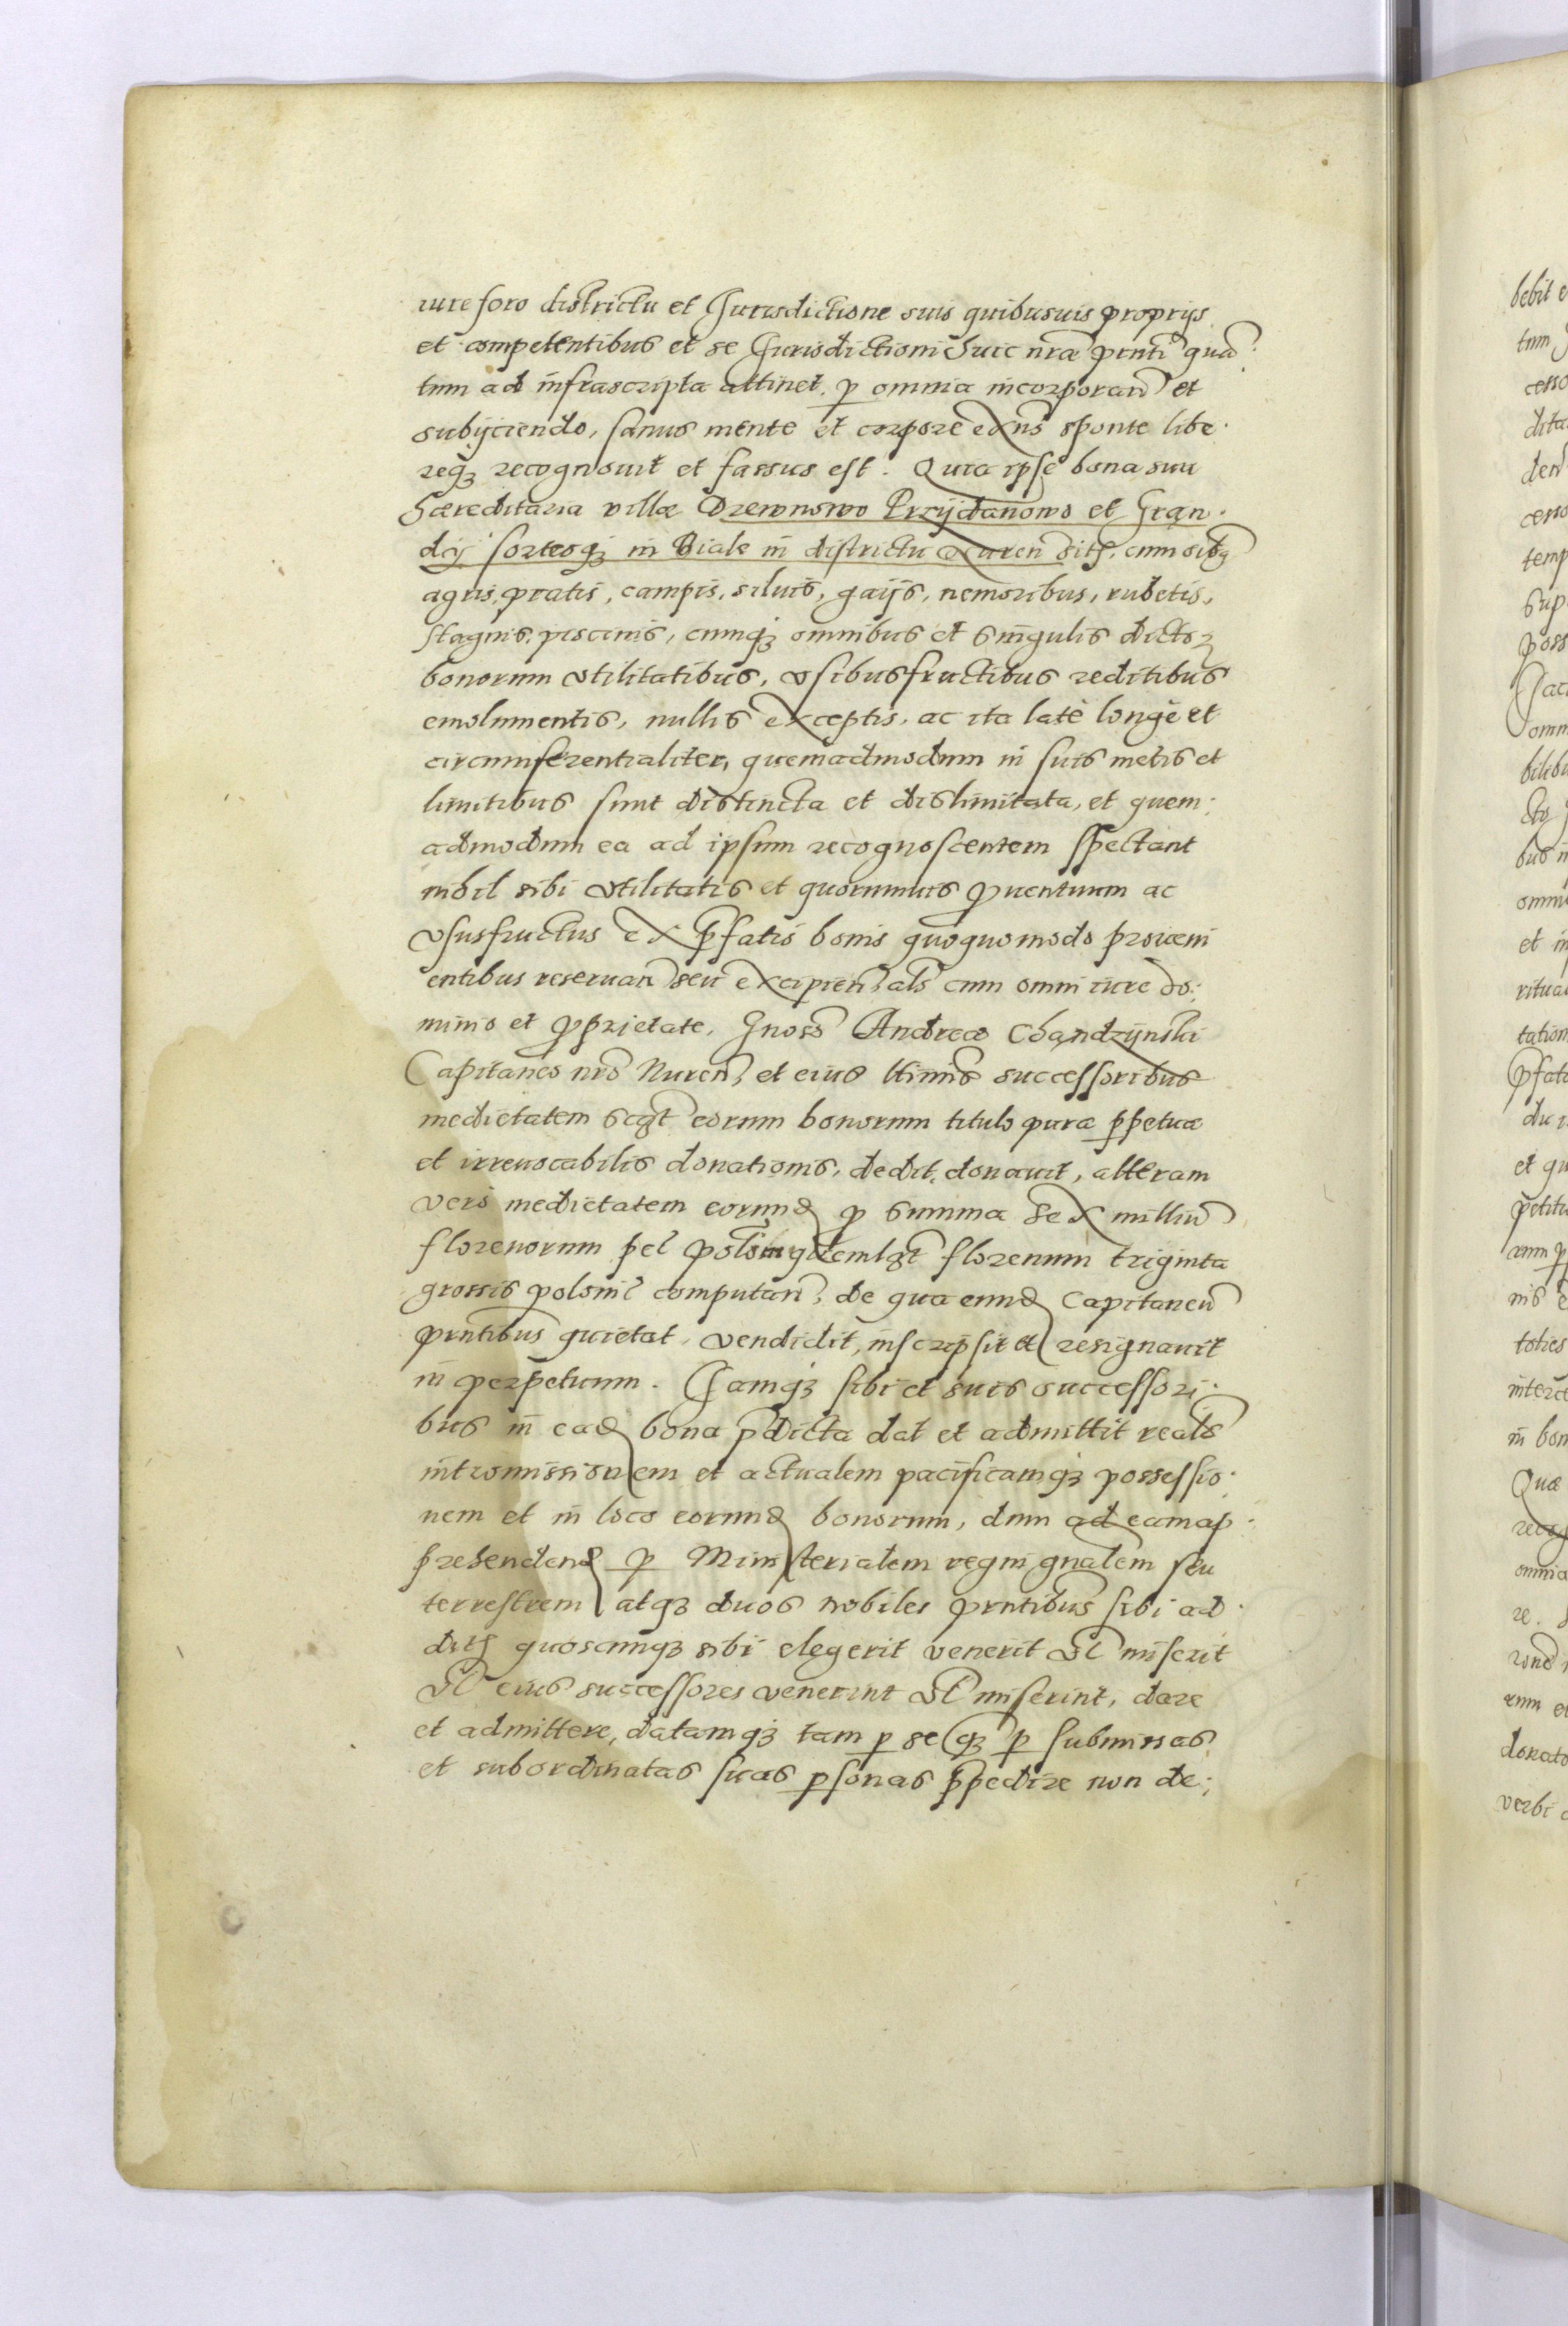 iure foro districtu et Jurisdictione suis quibusuis proprijs
et competentibus et se Jurisdictioni huic nrae prnti quā
tum ad infrascripta attinet, p omnia incorporan et
subijciendo, sanus mente et corpore exns sponte libe
reqȝ recognouit et fassus est. Quia ipse bona sua
haereditaria villae Drewnowo Przijdanowo et Gran
dij sortesqȝ in Biale in districtu Nuren sith. cum oibq
agris, pratis, campis, siluis, gaijs, nemoribus, rubetis,
stagnis, piscinis, cumqȝ omnibus et singulis dictoꝝ
bonorum vtilitatibus, vsibusfructibus reditibus
emolumentis, nullis exceptis, ac ita latè longè et
circumferentialiter, quemadmodum in suis metis et
limitibus sunt distincta et dislimitata, et quem
admodum ea ad ipsum recognoscentem spectant
nihil sibi vtilitatis et quorumuis ꝓuentuum ac
vsusfructus ex p̄fatis bonis quoquomodo proueni
entibus reseruan seu excipien, als cum omni iure do:
minio et ꝓprietate, Gnoso Andreae Chandzijnski
Capitaneo nro Nuren, et eius ltimis successoribus
medietatem scqt eorum bonorum titulo purae ꝑpetuae
et irreuocabilis donationis, dedit, donauit, alteram
verò medietatem eorund ꝓ summa sex milliū
florenorum pel polonical quemlqt florenum triginta
grossis polonil computan, de qua eund Capitaneū
prntibus quietat, vendidit, inscripsit et resignauit
in perpetuum. Jamqȝ sibi et suis successori
bus in ead bona p̄dicta dat et admittit realē
intromissionem et actualem pacificamqȝ possessio
nem et in loco eorund bonorum, dum ad eam ap
prehendend ꝑ Ministerialem regni gnalem seu
terrestrem atqȝ duos nobiles prntibus sibi ad
dith quoscunqȝ sibi elegerit venerit vl miserit
vl eius successores venerint vl miserint, dare
et admittere, datamqȝ tam ꝑ se qȝ ꝑ submissas
et subordinatas suas ꝑsonas p̄pedire non de:

bebit e
tum
cesso
dita
den
cens
temp
sup
poss
Jac
omn
bilibu
cto
bus in
omni
et in
ritua
tation
p̄fat
du
et qu
petitu
rum ꝑ
nis e
toties
interce
in bon
Quae
recog
omnia
re.
rone
rum et
donato
verbi